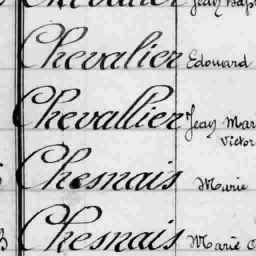 Chevalier Edouard
Chevallier Jean Mar
Victor
Chesnais Marie
Chesnais Marie